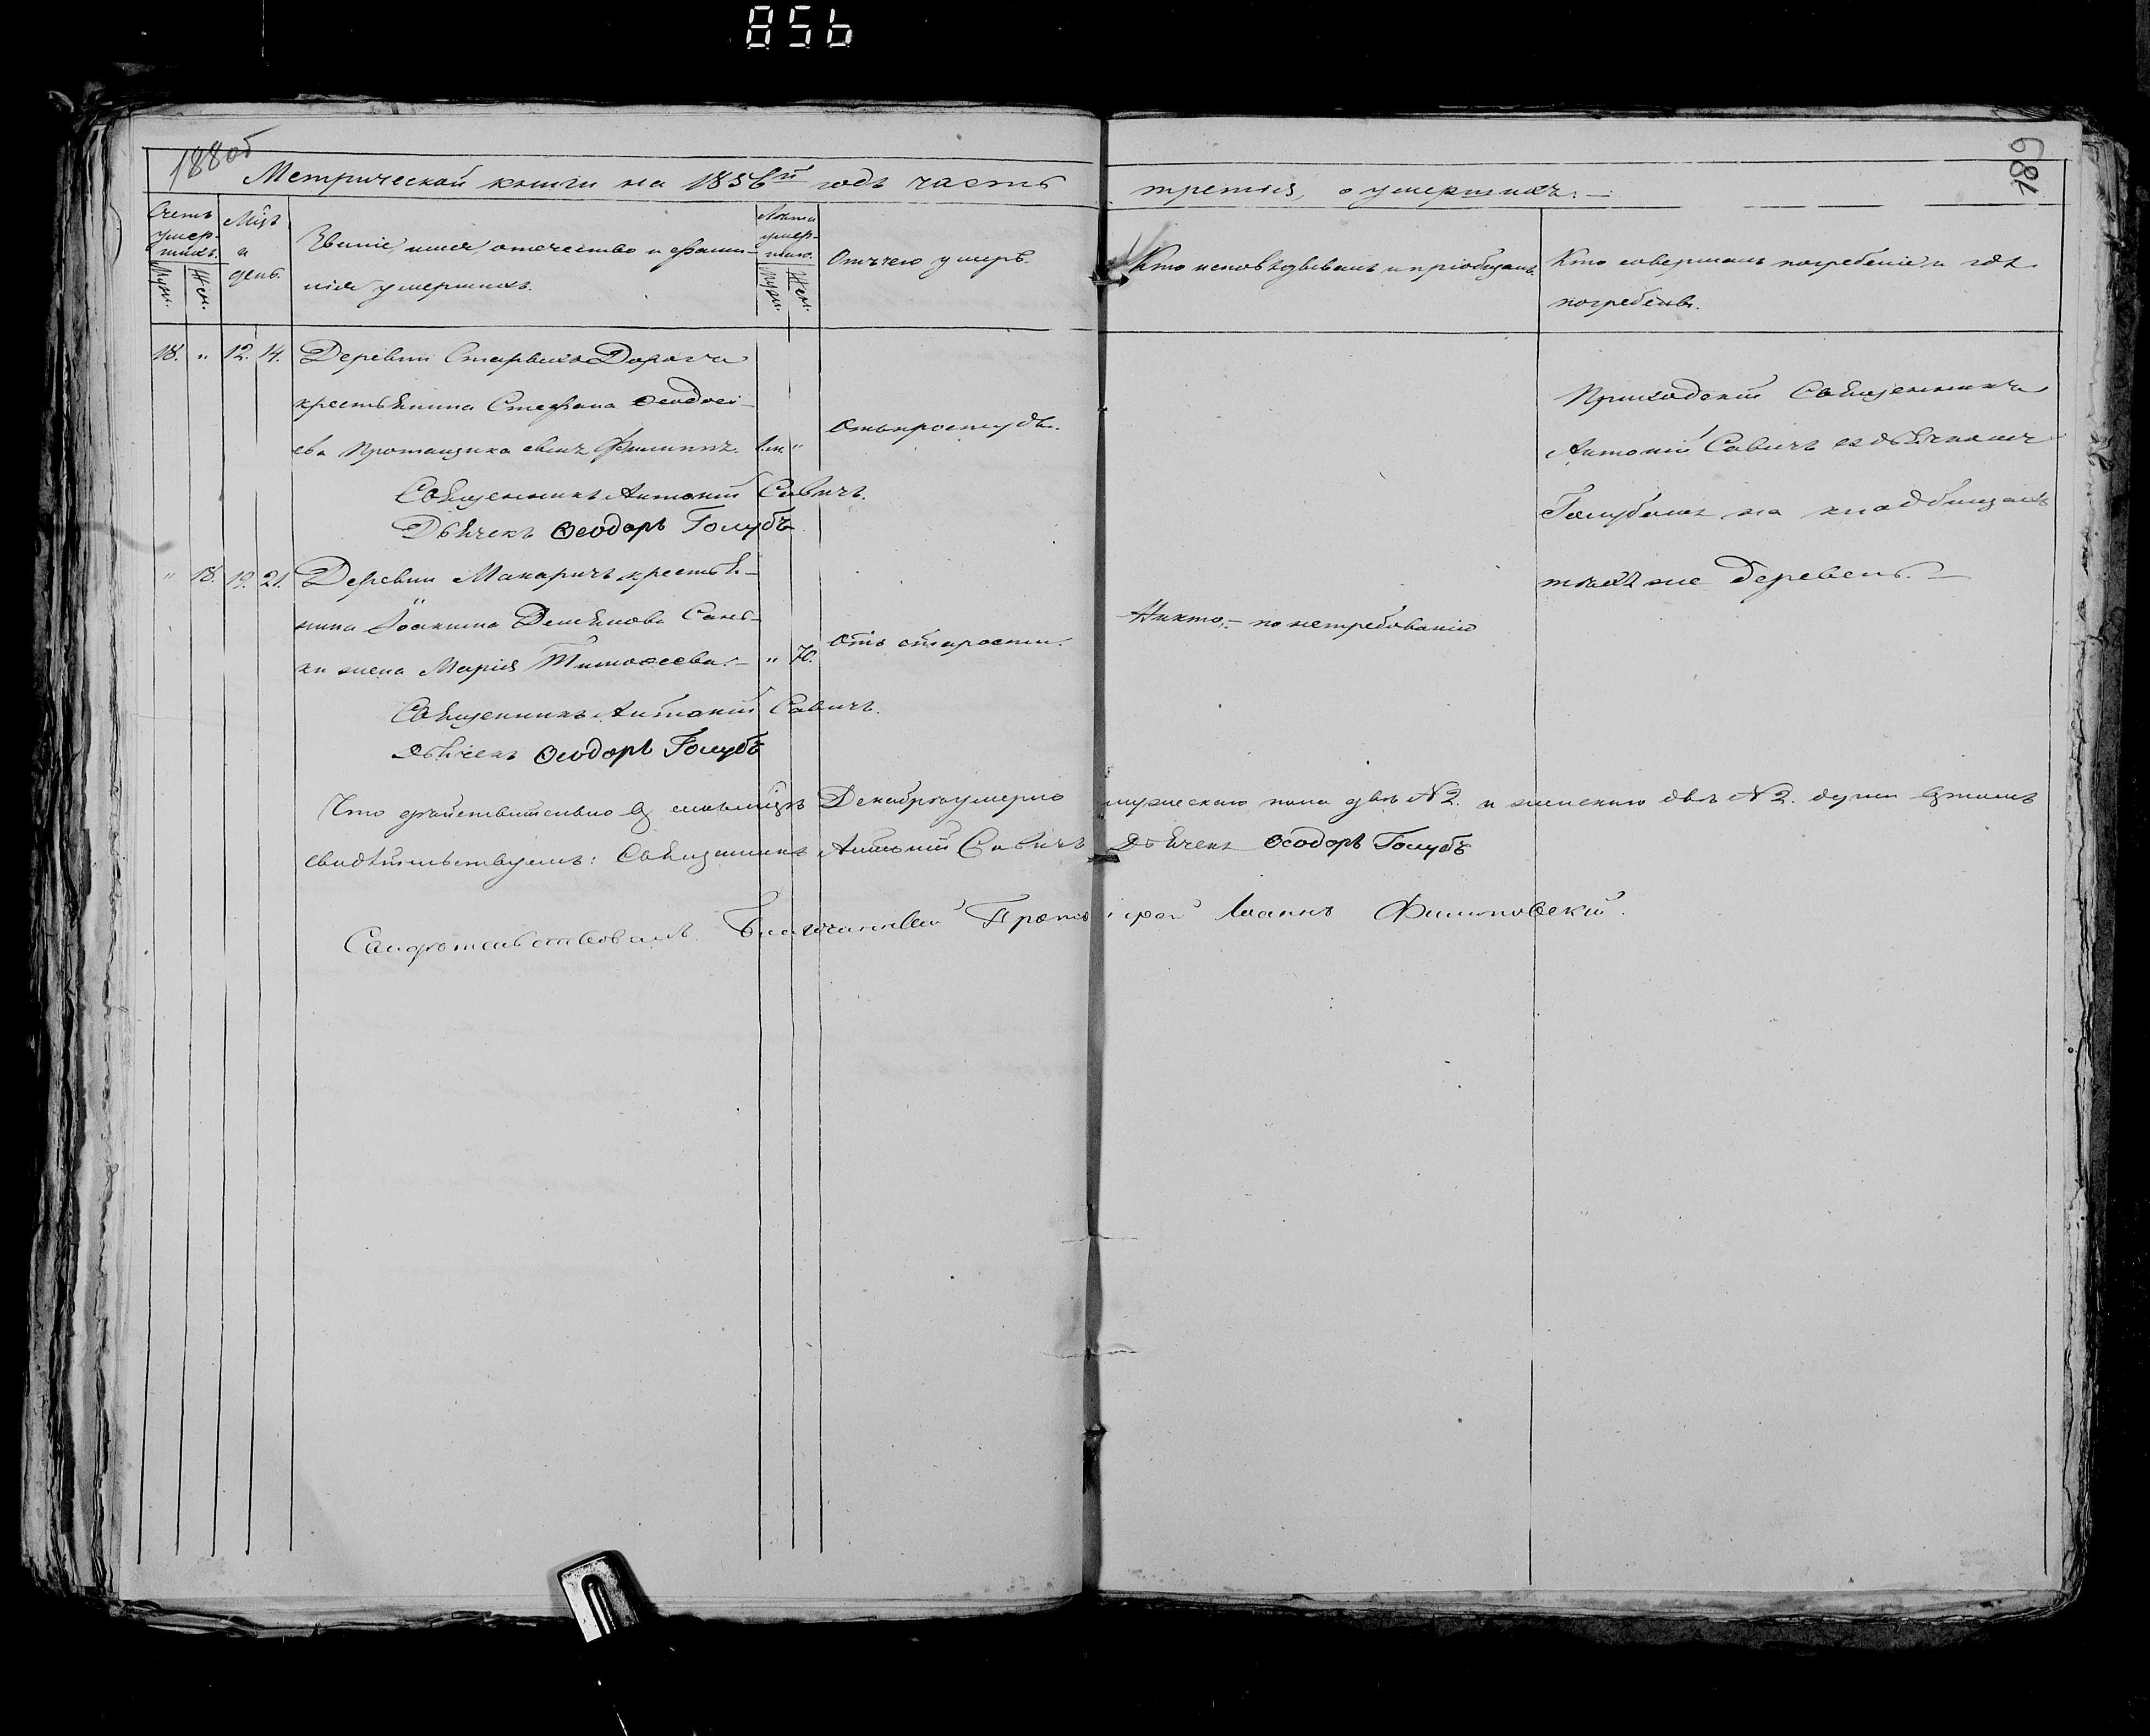 856
188 об
189
Метрической книги на 1856й годъ часть третія, о умершихъ:
Счетъ умер-
шихъ.
Муж.
Жен.
Мцъ
и
день.
Званіе, имя, отечество и фами-
лія умершихъ.
Лѣта
умер-
шаго.
Муж.
Жен.
Отъ чего умеръ.
Кто исповѣдывалъ и пріобщалъ.
Кто совершалъ погребеніе и гдѣ
погребенъ.
18. " 12. 14. Деревни Старыхъ Дорогъ
крестьянина Стефана Ѳеодосі-
ева сынъ Филиппъ. "
Отъ простуды.
Священникъ Антоній Савичъ.
Дьячекъ Ѳеодоръ Голубъ
Приходскій Священникъ
Антоній Савичъ съ дьячкомъ
Голубомъ на кладбищахъ
тѣхъ же деревень.
" 18. 19. 21. Деревни Макаричъ крестья-
нина Іоакима
жена Марія Тимоѳеева. " 70.
Отъ старости.
Никто, по нетребованію
Священникъ Антоній Савичъ.
Дьячекъ Ѳеодоръ Голубъ
Что дѣйствительно въ семъ мцѣ Декабрѣ умерло мужескаго пола двѣ № 2. и женскаго двѣ № 2. души въ томъ
свидѣтельствуемъ: Священникъ Антоній Савичъ Дьячекъ Ѳеодоръ Голубъ
Свидѣтельствовалъ Благочинный Протоіерей Іоаннъ